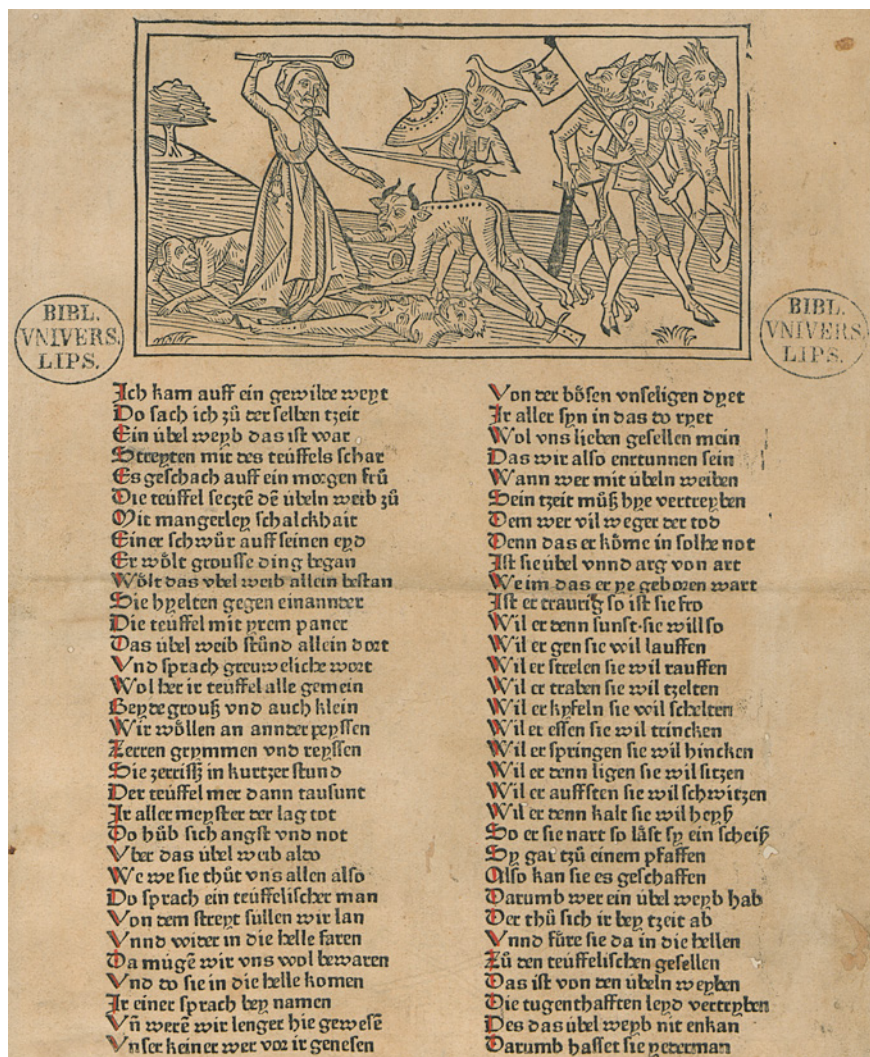 BIBL.
VNIVERS.
LIPS.
BIBL.
VNIVERS.
LIPS.
Ich kam auff ein gewilde weyt
Do sach ich zů der selben tzeit
Ein úbel weyb das ist war
Streyten mit des teúffels schar
Es geschach auff ein morgen frů
Die teúffel seczte͂ de͂ úbeln weib zů
Mit mangerley schalckhait
Einer schwůr auff seinen eyd
Er wo͏̈lt grousse ding began
Wo͏̈lt das vbel weib allein bestan
Sie hyelten gegen einannder
Die teúffel mit yrem paner
Das úbel weib stůnd allein dort
Vnd sprach greuweliche wort
Wol her ir teúffel alle gemein
Beyde grouß vnd auch klein
Wir wo͏̈llen an annder peyssen
Zerren grymmen vnd reyssen
Sie zerrisß in kurtzer stund
Der teúffel mer dann tausunt
Ir aller meyster der lag tot
Do hůb sich angst vnd not
Vber das úbel weib also
We we sie thůt vns allen also
Do sprach ein teúffelischer man
Von dem streyt súllen wir lan
Vnnd wider in die helle faren
Da múge͂ wir vns wol bewaren
Vnd do sie in die helle komen
Ir einer sprach bey namen
Vn͂ were͂ wir lenger hie gewese͂
Vnser keiner wer vor ir genesen
Von der bo͏̈sen vnseligen dyet
Ir aller syn in das do ryet
Wol vns lieben gesellen mein
Das wir also enrtunnen sein
Wann wer mit úbeln weiben
Sein tzeit můß hye vertreyben
Dem wer vil weger der tod
Denn das er ko͏̈me in solhe not
Ist sie úbel vnnd arg von art
We im das er ye geboren wart
Ist er traurig so ist sie fro
Wil er denn sunst sie will so
Wil er gen sie wil lauffen
Wil er strelen sie wil rauffen
Wil er traben sie wil tzelten
Wil er kyfeln sie wil schelten
Wil er essen sie wil trincken
Wil er springen sie wil hincken
Wil er denn ligen sie wil sitzen
Wil er auffsten sie wil schwitzen
Wil er denn kalt sie wil heyß
So er sie nart so låst sy ein scheiß
Sy gat tzů einem pfaffen
Also kan sie es geschaffen
Darumb wer ein úbel weyb hab
Der thů sich ir bey tzeit ab
Vnnd fůre sie da in die hellen
Zů den teúffelischen gesellen
Das ist von den úbeln weyben
Die tugenthafften leyd vertryben
Des das úbel weyb nit enkan
Darumb hasset sie yederman